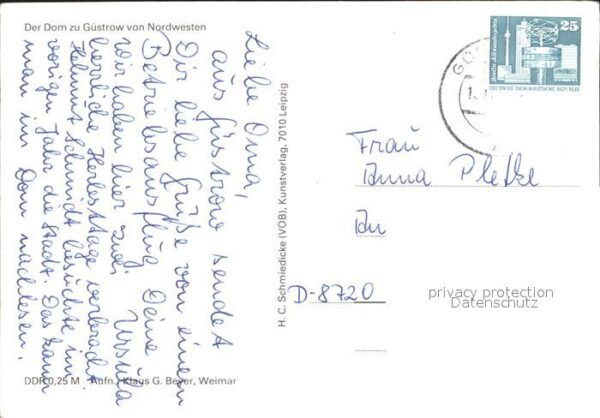 Der Dom zu Güstrow von Nordwesten
Liebe Oma,
aus Güstrow sendet
Dir liebe Grüße von einem
Betriebsausflug Deine Ursula
Wir haben hier zwei
herrliche Herbsttage verbracht.
Helmut Schmidt besuchte im
vorigen Jahr die Stadt. Das kann
man im Dom nachlesen.
DDR 0,25 M Aufn.: Klaus G. Beyer, Weimar
H. C. Schmiedicke (VOB), Kunstverlag, 7010 Leipzig
25
Berlin, Alexanderplatz
DEUTSCHE DEMOKRATISCHE REPUBLIK
Frau
Anna
D-8720
privacy protection
Datenschutz